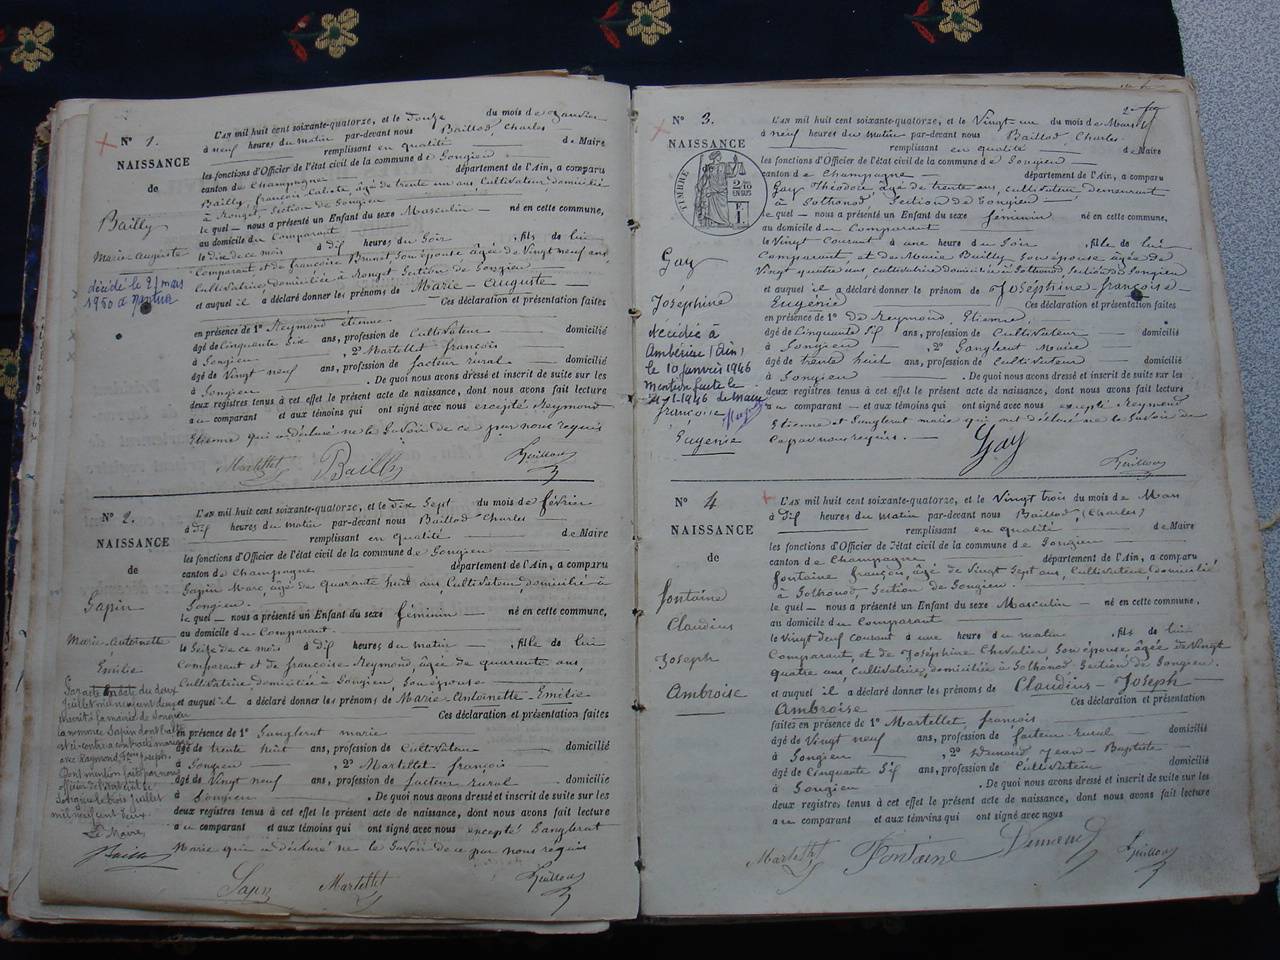 N° 1.
NAISSANCE
de
Bailly
Marie-Auguste
décédé le 21 mars
1950 à
L'AN mil huit cent soixante-quatorze, et le Douze du mois de Janvier
à neuf heures du matin par-devant nous Baillod Charles
remplissant en qualité de Maire
les fonctions d'Officier de l'état civil de la commune de Songieu
canton de Champagne département de l'Ain, a comparu
Bailly, françois Calixte, âgé de trente un ans, Cultivateur domicilié
à Section de Songieu
le quel nous a présenté un Enfant du sexe Masculin né en cette commune,
au domicile du Comparant
le dix de ce mois à dix heures du Soir, fils de lui
Comparant et de françoise Brunet Son épouse âgée de Vingt neuf ans,
Cultivatrice, domiciliée à Section de Songieu
et auquel il a déclaré donner les prénoms de Marie-Auguste
Ces déclaration et présentation faites
en présence de 1° Reymond étienne
âgé de Cinquante Six ans, profession de Cultivateur domicilié
à Songieu, 2° Martellet françois
âgé de Vingt neuf ans, profession de facteur rural domicilié
à Songieu. De quoi nous avons dressé et inscrit de suite sur les
deux registres tenus à cet effet le présent acte de naissance, dont nous avons fait lecture
au comparant et aux témoins qui ont signé avec nous excepté Reymond
Etienne qui a déclaré ne le Savoir de ce par nous requis
Martellet Bailly
N° 2.
NAISSANCE
de
Sapin
Marie-Antoinette
Emilie
Par acte en date du deux
Juillet mil neuf cent deux
inscrit à la mairie de Songieu
la nommée Sapin dont l'acte
est ci-contre a contracté mariage
avec Raymond, Joseph.
Dont mention faite par nous
officier de l'état civil de
Songieu le trois Juillet
mil neuf cent deux.
Le Maire,
L'AN mil huit cent soixante-quatorze, et le Dix Sept du mois de février
à Dix heures du matin par-devant nous Baillod Charles
remplissant en qualité de Maire
les fonctions d'Officier de l'état civil de la commune de Songieu
canton de Champagne département de l'Ain, a comparu
Sapin Marc, âgé de quarante huit ans, Cultivateur, domicilié à
Songieu.
le quel nous a présenté un Enfant du sexe féminin né en cette commune,
au domicile du Comparant.
le Seize de ce mois à dix heures du matin, fille de lui
Comparant et de françoise Reymond, âgée de quarante ans,
Cultivatrice domiciliée à Songieu, Son épouse
et auquel il a déclaré donner les prénoms de Marie-Antoinette-Emilie
Ces déclaration et présentation faites
en présence de 1° Sanglerat marie
âgé de trente huit ans, profession de Cultivateur domicilié
à Songieu, 2° Martellet françois
âgé de Vingt neuf ans, profession de facteur rural domicilié
à Songieu. De quoi nous avons dressé et inscrit de suite sur les
deux registres tenus à cet effet le présent acte de naissance, dont nous avons fait lecture
au comparant et aux témoins qui ont signé avec nous excepté Sanglerat
Marie qui a déclaré ne le Savoir de ce par nous requis
Sapin Martellet
N° 3.
NAISSANCE
de
TIMBRE
2 10
EN SUS
Gay
Joséphine
décédée à
Ambérieu (Ain)
le 10 janvier 1946
Mention faite le
1946
françoise
Eugénie
L'AN mil huit cent soixante-quatorze, et le Vingt un du mois de Mars
à neuf heures du matin par-devant nous Baillod Charles
remplissant en qualité de Maire
les fonctions d'Officier de l'état civil de la commune de Songieu
canton de Champagne département de l'Ain, a comparu
Gay Théodore âgé de trente ans, cultivateur demeurant
à Sothonod, Section de Songieu
le quel nous a présenté un Enfant du sexe féminin né en cette commune,
au domicile du Comparant
le Vingt Courant à une heure du Soir, fille de lui
Comparant, et de Marie Bailly Son épouse âgée de
Vingt quatre ans, cultivatrice domiciliée à Sothonod, Section de Songieu
et auquel il a déclaré donner le prénom de Joséphine françoise
Eugénie Ces déclaration et présentation faites
en présence de 1° Reymond, Etienne
âgé de Cinquante Six ans, profession de Cultivateur domicilié
à Songieu, 2° Sanglerat Marie
âgé de trente huit ans, profession de Cultivateur domicilié
à Songieu. De quoi nous avons dressé et inscrit de suite sur les
deux registres tenus à cet effet le présent acte de naissance, dont nous avons fait lecture
au comparant et aux témoins qui ont signé avec nous excepté Reymond
Etienne et Sanglerat marie qui ont déclaré ne le Savoir de
ce par nous requis.
Gay
N° 4
NAISSANCE
de
fontaine
Claudius
Joseph
Ambroise
L'AN mil huit cent soixante-quatorze, et le Vingt trois du mois de Mars
à Dix heures du matin par-devant nous Baillod (Charles)
remplissant en qualité de Maire
les fonctions d'Officier de l'état civil de la commune de Songieu
canton de Champagne département de l'Ain, a comparu
fontaine françois, âgé de Vingt Sept ans, Cultivateur domicilié
à Sothonod, Section de Songieu.
le quel nous a présenté un Enfant du sexe Masculin né en cette commune,
au domicile du Comparant
le Courant à une heure du matin, fils de lui
Comparant, et de Joséphine Chevalier Son épouse âgée de Vingt
quatre ans, Cultivatrice, domiciliée à Sothonod Section de Songieu.
et auquel il a déclaré donner les prénoms de Claudius-Joseph
Ambroise Ces déclaration et présentation
faites en présence de 1° Martellet, françois
âgé de Vingt neuf ans, profession de facteur rural domicilié
à Songieu, 2° Jean-Baptiste
âgé de Cinquante Six ans, profession de Cultivateur domicilié
à Songieu. De quoi nous avons dressé et inscrit de suite sur les
deux registres tenus à cet effet le présent acte de naissance, dont nous avons fait lecture
au comparant et aux témoins qui ont signé avec nous
Martellet Fontaine